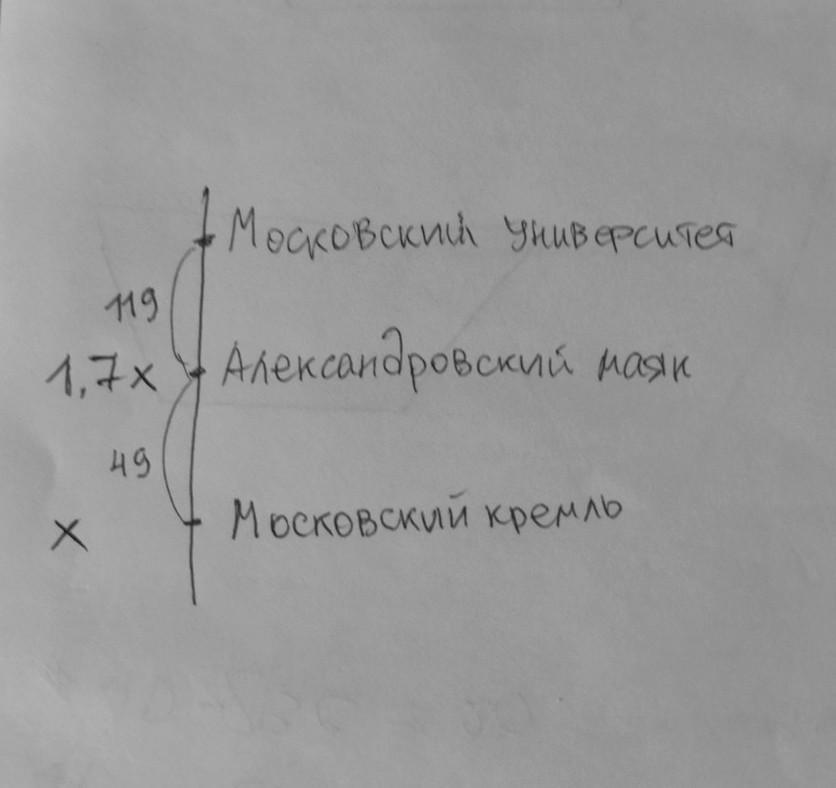 Московский университет
119
1,7x Александровский маяк
49
x Московский кремль